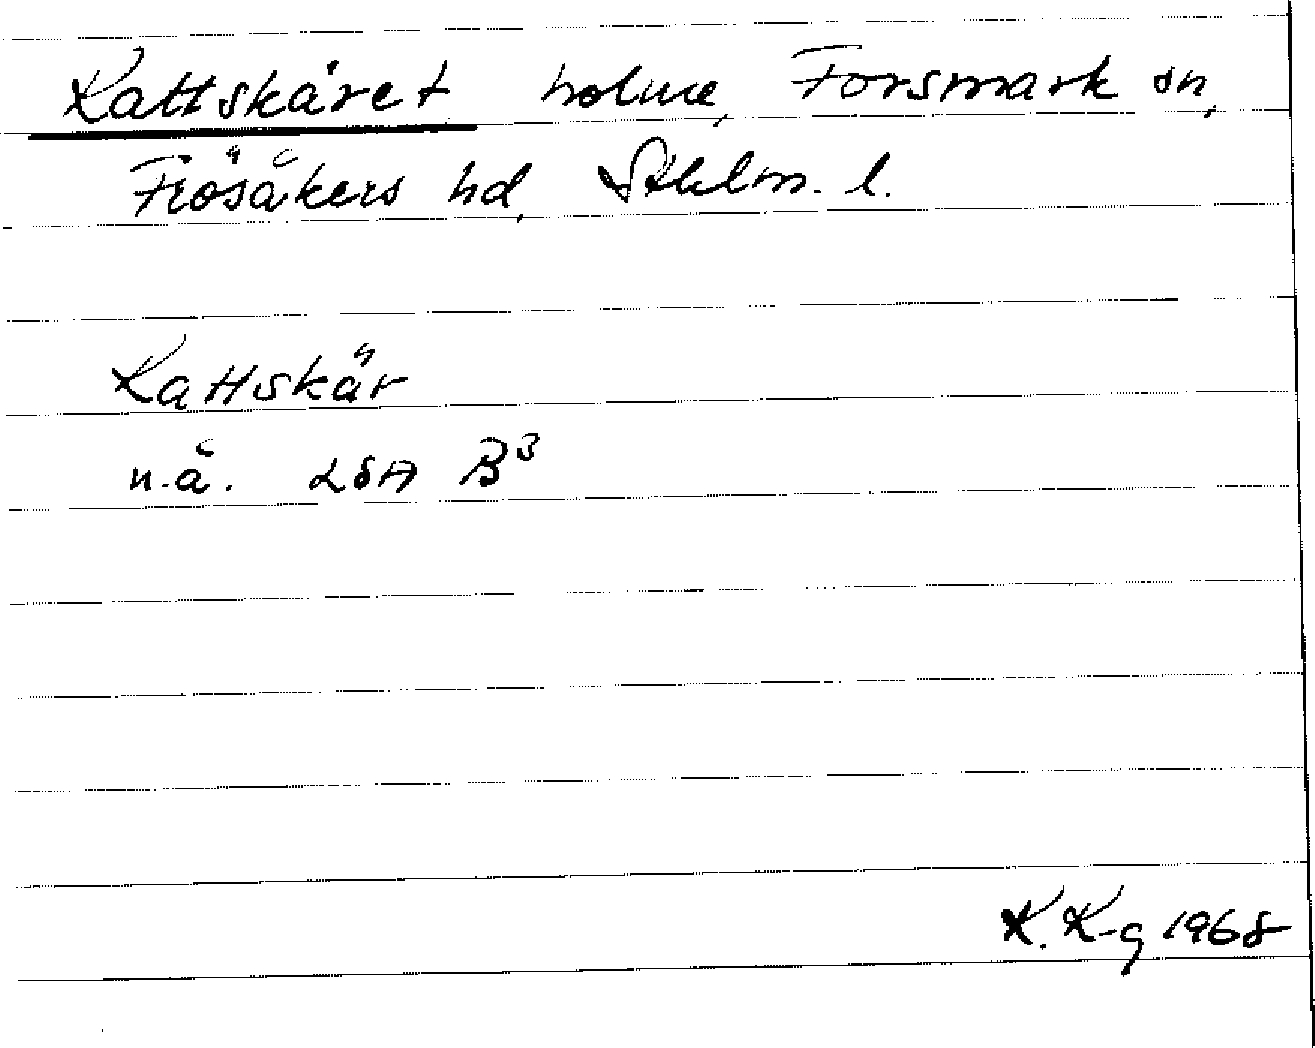 Kattskäret holme, Forsmark sn,
Frösåkers hd, Sthlm. l.
Kattskär
n.å. LSA B3
K. K-g 1968